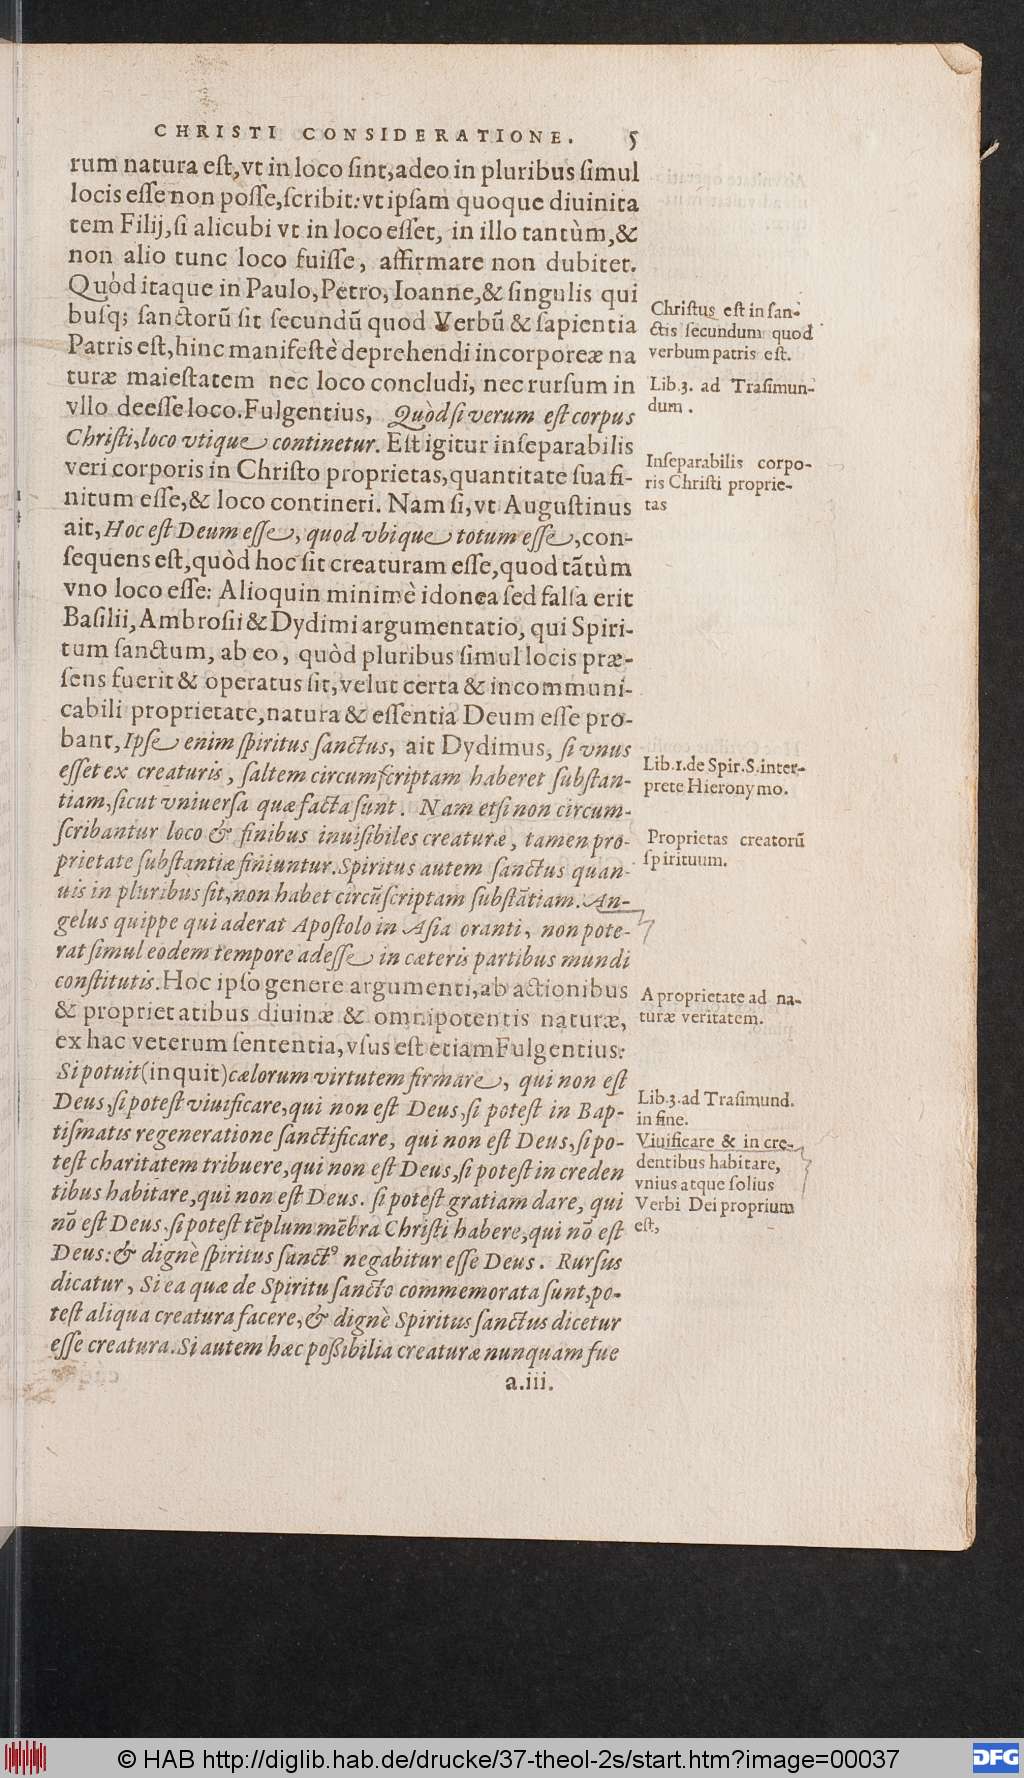 CHRISTI CONSIDERATIONE. 5
rum natura est, vt in loco sint, adeo in pluribus simul
locis esse non posse, scribit: vt ipsam quoque diuinita
tem Filij, si alicubi vt in loco esset, in illo tantùm, &
non alio tunc loco fuisse, affirmare non dubitet.
Quòd itaque in Paulo, Petro, Ioanne, & singulis qui
busq; sanctorũ sit secundũ quod Verbũ & sapientia
Patris est, hinc manifestè deprehendi incorporeæ na
turæ maiestatem nec loco concludi, nec rursum in
vllo deesse loco. Fulgentius, Quòd si verum est corpus
Christi, loco vtique continetur. Est igitur inseparabilis
veri corporis in Christo proprietas, quantitate sua fi-
nitum esse, & loco contineri. Nam si, vt Augustinus
ait, Hoc est Deum esse, quod vbique totum esse, con-
sequens est, quòd hoc sit creaturam esse, quod tãtùm
vno loco esse: Alioquin minimè idonea sed falsa erit
Basilii, Ambrosii & Dydimi argumentatio, qui Spiri-
tum sanctum, ab eo, quòd pluribus simul locis præ-
sens fuerit & operatus sit, velut certa & incommuni-
cabili proprietate, natura & essentia Deum esse pro-
bant, Ipse enim spiritus sanctus, ait Dydimus, si vnus
esset ex creaturis, saltem circumscriptam haberet substan-
tiam, sicut vniuersa quæ facta sunt. Nam etsi non circum-
scribantur loco & finibus inuisibiles creaturæ, tamen pro-
prietate substantiæ finiuntur. Spiritus autem sanctus quan-
uis in pluribus sit, non habet circũscriptam substãtiam. An-
gelus quippe qui aderat Apostolo in Asia oranti, non pote-
rat simul eodem tempore adesse in cæteris partibus mundi
constitutis. Hoc ipso genere argumenti, ab actionibus
& proprietatibus diuinæ & omnipotentis naturæ,
ex hac veterum sententia, vsus est etiam Fulgentius:
Si potuit (inquit) cælorum virtutem firmare, qui non est
Deus, si potest viuificare, qui non est Deus, si potest in Bap-
tismatis regeneratione sanctificare, qui non est Deus, si po-
test charitatem tribuere, qui non est Deus, si potest in creden
tibus habitare, qui non est Deus. si potest gratiam dare, qui
nõ est Deus, si potest tẽplum mẽbra Christi habere, qui nõ est
Deus: & dignè spiritus sanctꝰ negabitur esse Deus. Rursus
dicatur, Si ea quæ de Spiritu sancto commemorata sunt, po-
test aliqua creatura facere, & dignè Spiritus sanctus dicetur
esse creatura. Si autem hæc possibilia creaturæ nunquam fue
a.iii.
Christus est in san-
ctis secundum quod
verbum patris est.
Lib.3. ad Trasimun-
dum.
Inseparabilis corpo-
ris Christi proprie-
tas
Lib.1.de Spir.S.inter-
prete Hieronymo.
Proprietas creatorũ
spirituum.
A proprietate ad na-
turæ veritatem.
Lib.3.ad Trasimund.
in fine.
Viuificare & in cre-
dentibus habitare,
vnius atque solius
Verbi Dei proprium
est,
© HAB http://diglib.hab.de/drucke/37-theol-2s/start.htm?image=00037
DFG